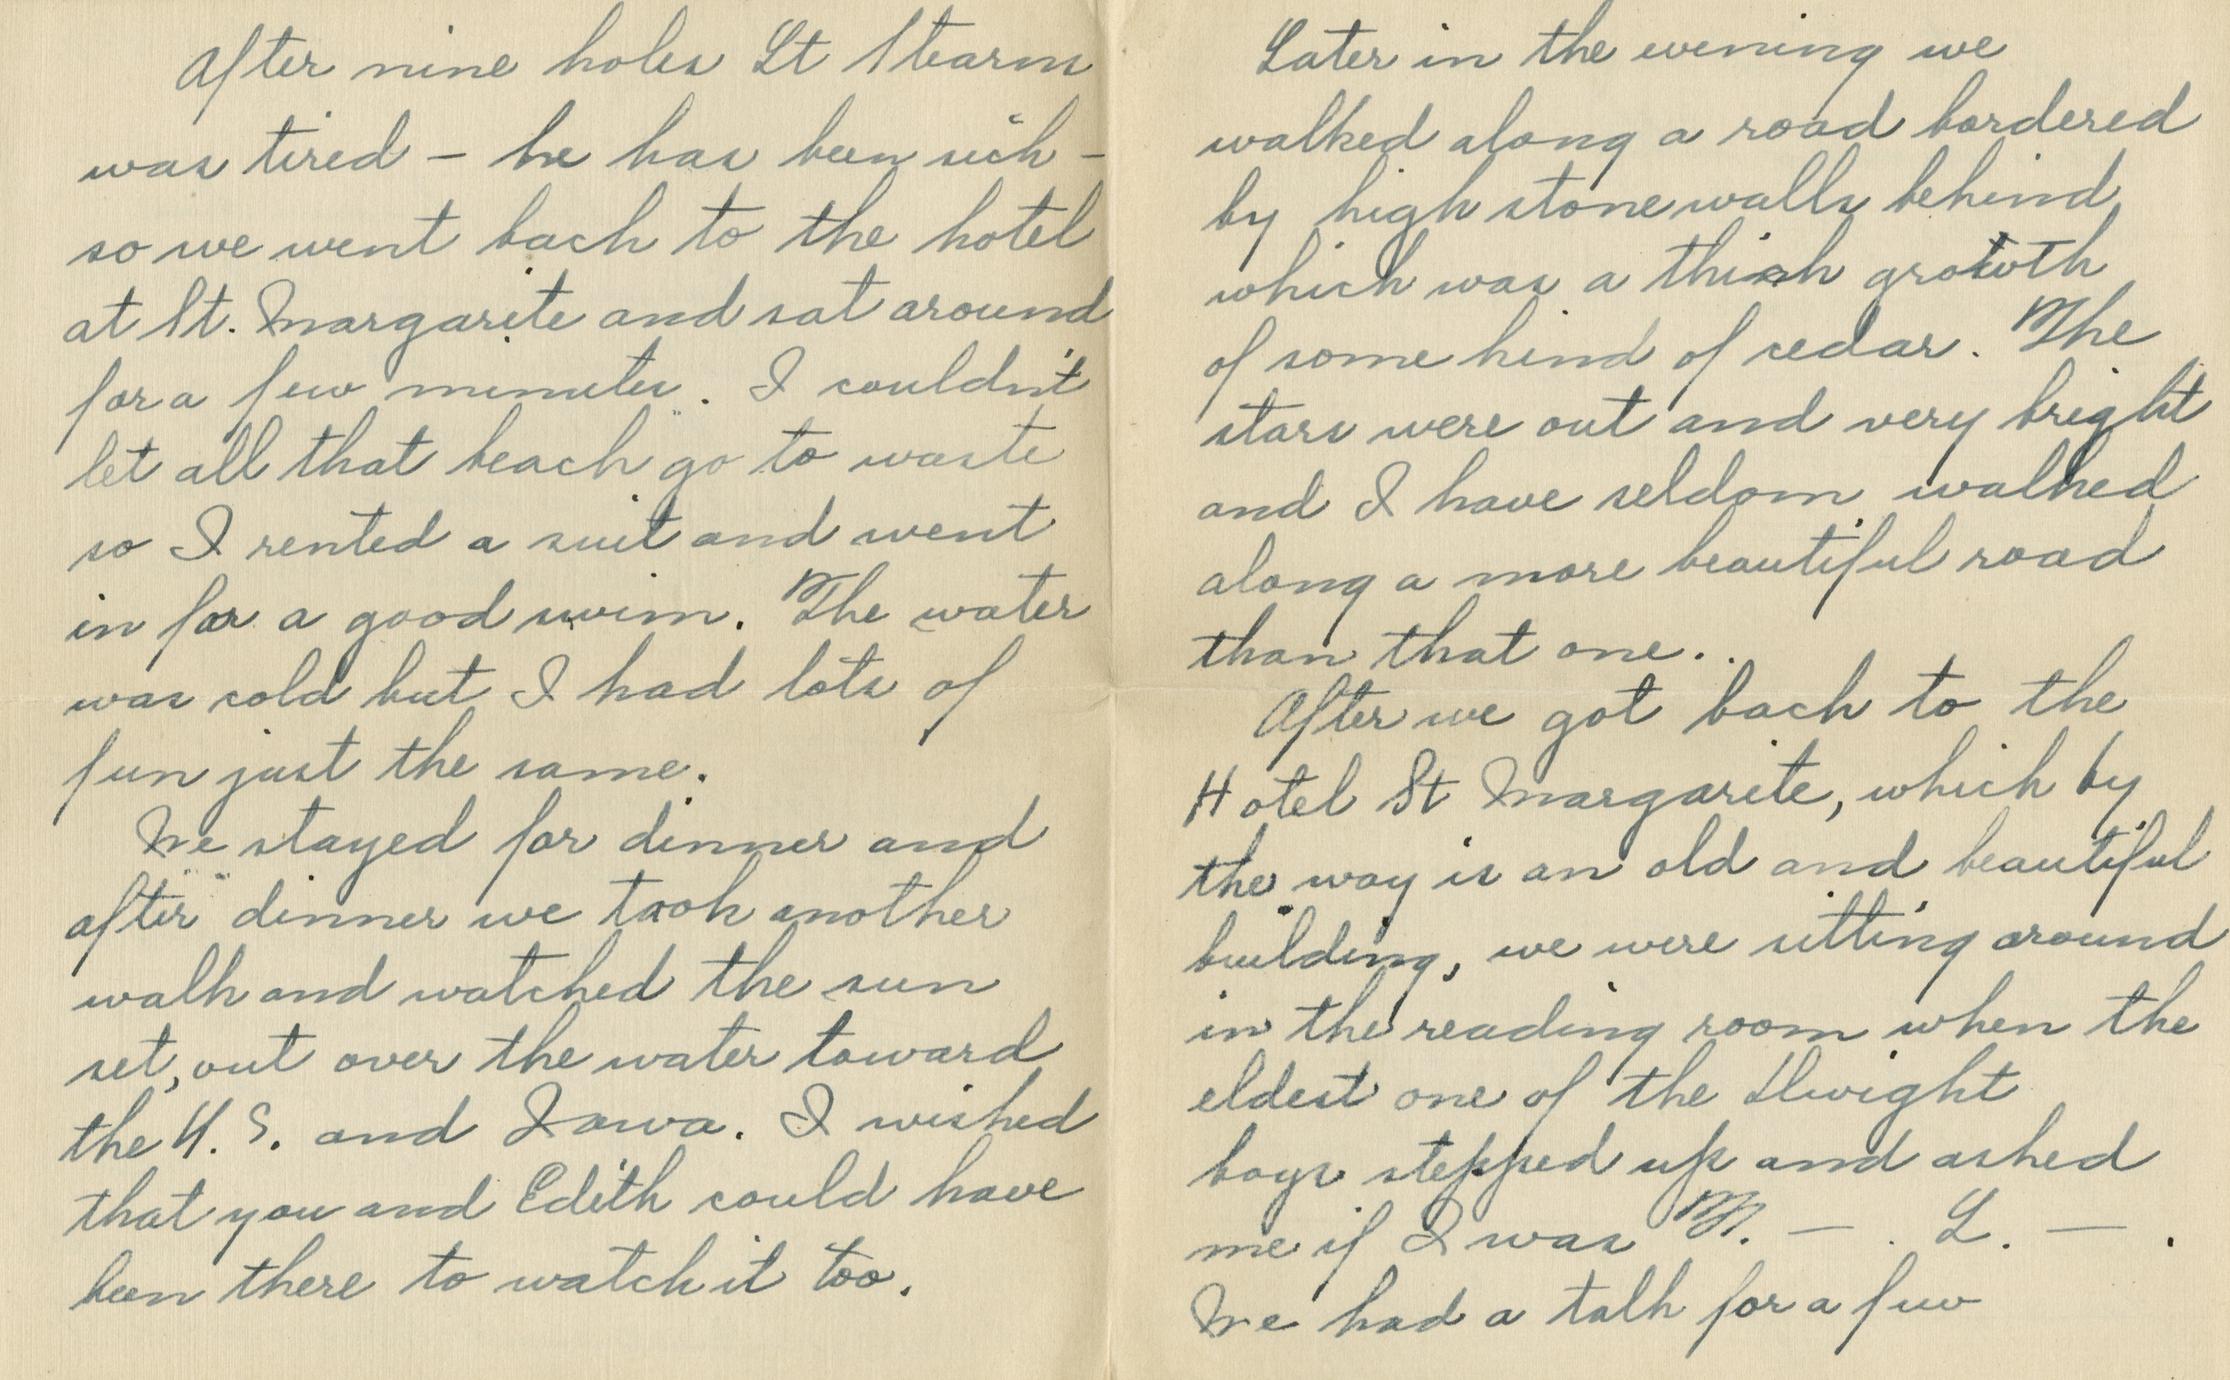 After nine holes Lt Stearns
was tired - he has been sick -
so we went back to the hotel
at St. Margarite and sat around
for a few minutes. I couldn't
let all that beach go to waste
so I rented a suit and went
in for a good swim. The water
was cold but I had lots of
fun just the same.
We stayed for dinner and
after dinner we took another
walk and watched the sun
set, out over the water toward
the U. S. and Iowa. I wished
that you and Edith could have
been there to watch it too.
Later in the evening we
walked along a road bordered
by high stone walls behind
which was a thick growth
of some kind of cedar. The
stars were out and very bright
and I have seldom walked
along a more beautiful road
than that one.
After we got back to the
Hotel St Margarite, which by
the way is an old and beautiful
building, we were sitting around
in the reading room when the
eldest one of the Dwight
boys stepped up and asked
me if I was M. — . L. — .
We had a talk for a few